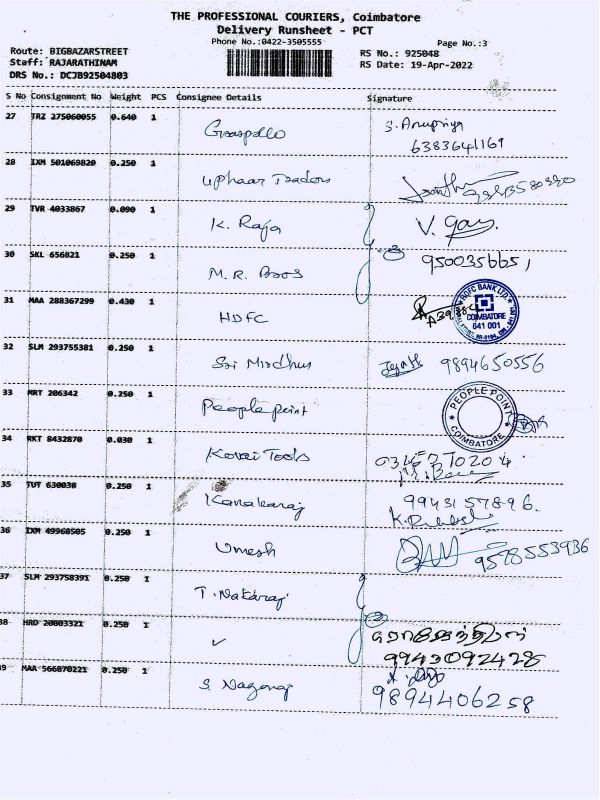 THE PROFESSIONAL COURIERS, Coimbatore
Delivery Runsheet - PCT
Phone No.:0422-3505555
Page No.:3
Route: BIGBAZARSTREET
RS No.: 925048
Staff: RAJARATHINAM
RS Date: 19-Apr-2022
DRS No.: DCJB92504803
S No Consignment No Weight PCS Consignee Details Signature
27 TRZ 275060055 0.640 1 S. Anupriya
6383641169
28 IXM 501069820 0.250 1 Uphaar Traders
29 TVR 4033867 0.090 1 K. Raja V. Gay
30 SKL 656821 0.250 1 M.R. Bros 950035665,
31 MAA 288367299 0.430 1 HDFC
HDFC BANK LTD.
COIMBATORE
641 001
32 SLM 293755381 0.250 1 Sri Mirdhus 9894650556
33 MRT 206342 0.250 1 People point
PEOPLE POINT
COIMBATORE
34 RKT 8432870 0.030 1 Kovai Tools
35 TUT 630038 0.250 1 Kanakaraj 9943157896.
36 IXM 49968505 0.250 1 Umesh 9578553936
37 SLM 293758391 0.250 1 T. Nataraj
38 HRD 20003321 0.250 1 ✓
9943092428
39 MAA 566870221 0.250 1 S. Nagaraj
9894406258